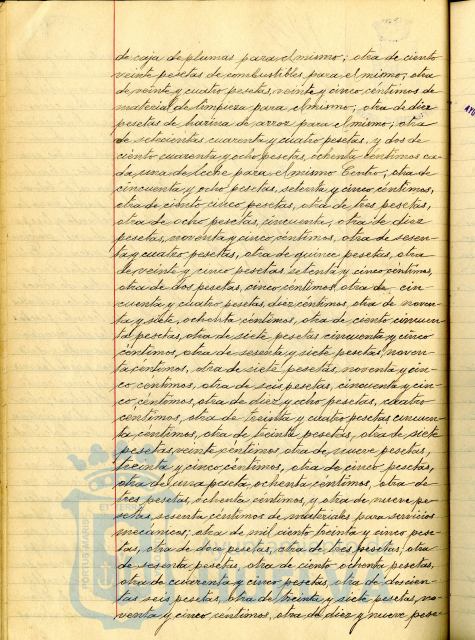 de caja de plumas para el mismo; otra de ciento
veinte pesetas de combustibles para el mismo; otra
de veinte y cuatro pesetas, veinte y cinco céntimos de
material de limpieza para el mismo; otra de diez
pesetas de harina de arroz para el mismo; otra
de setecientas cuarenta y cuatro pesetas, y dos de
ciento cuarenta y ocho pesetas, ochenta céntimos ca-
da una de leche para el mismo Centro; otra de
cincuenta y ocho pesetas, setenta y cinco céntimos,
otra de ciento cinco pesetas, otra de tres pesetas,
otra de ocho pesetas, cincuenta, otra de diez
pesetas, noventa y cinco céntimos, otra de sesen-
ta y cuatro pesetas, otra de quince pesetas, otra
de veinte y cinco pesetas, setenta y cinco céntimos,
otra de dos pesetas, cinco céntimos, otra de cin-
cuenta y cuatro pesetas, diez céntimos, otra de noven-
ta y siete, ochenta céntimos, otra de ciento cincuen-
ta pesetas, otra de siete pesetas cincuenta y cinco
céntimos, otra de sesenta y siete pesetas, noven-
ta céntimos, otra de siete pesetas, noventa y cin-
co céntimos, otra de seis pesetas, cincuenta y cin-
co céntimos, otra de diez y ocho pesetas, cuatro
céntimos, otra de treinta y cuatro pesetas cincuen-
ta céntimos, otra de treinta pesetas, otra de siete
pesetas veinte céntimos, otra de nueve pesetas,
treinta y cinco céntimos, otra de cinco pesetas,
otra de una peseta, ochenta céntimos, otra de
tres pesetas, ochenta céntimos, y otra de nueve pe-
setas, sesenta céntimos de materiales para servicios
mecánicos; otra de mil ciento treinta y cinco pese-
tas, otra de doce pesetas, otra de tres pesetas, otra
de sesenta pesetas, otra de ciento ochenta pesetas,
otra de cuarenta y cinco pesetas, otra de doscien-
tas seis pesetas, otra de treinta y siete pesetas, no-
venta y cinco céntimos, otra de diez y nueve pese-